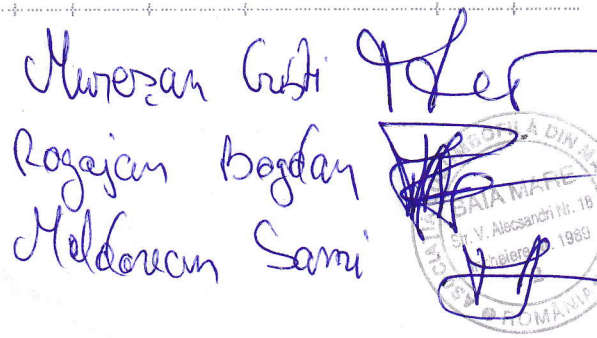 Mureșan Cristi
Rogojan Bogdan
Moldovean Sami
ASOCIAȚIA
BAIA MARE
Str. V. Alecsandri Nr. 18
1989
ROMÂNIA